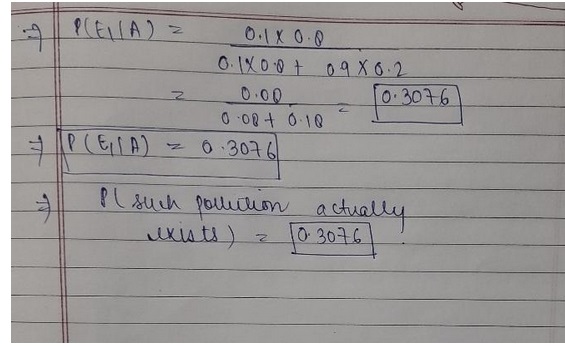 ⇒ P(E₁/A) = 0.1 X 0.8
0.1X0.8 + 0.9 X 0.2
= 0.08
0.08 + 0.18 = 0.3076
⇒ P(E₁/A) = 0.3076
⇒ P(such pollution actually
exists) = 0.3076